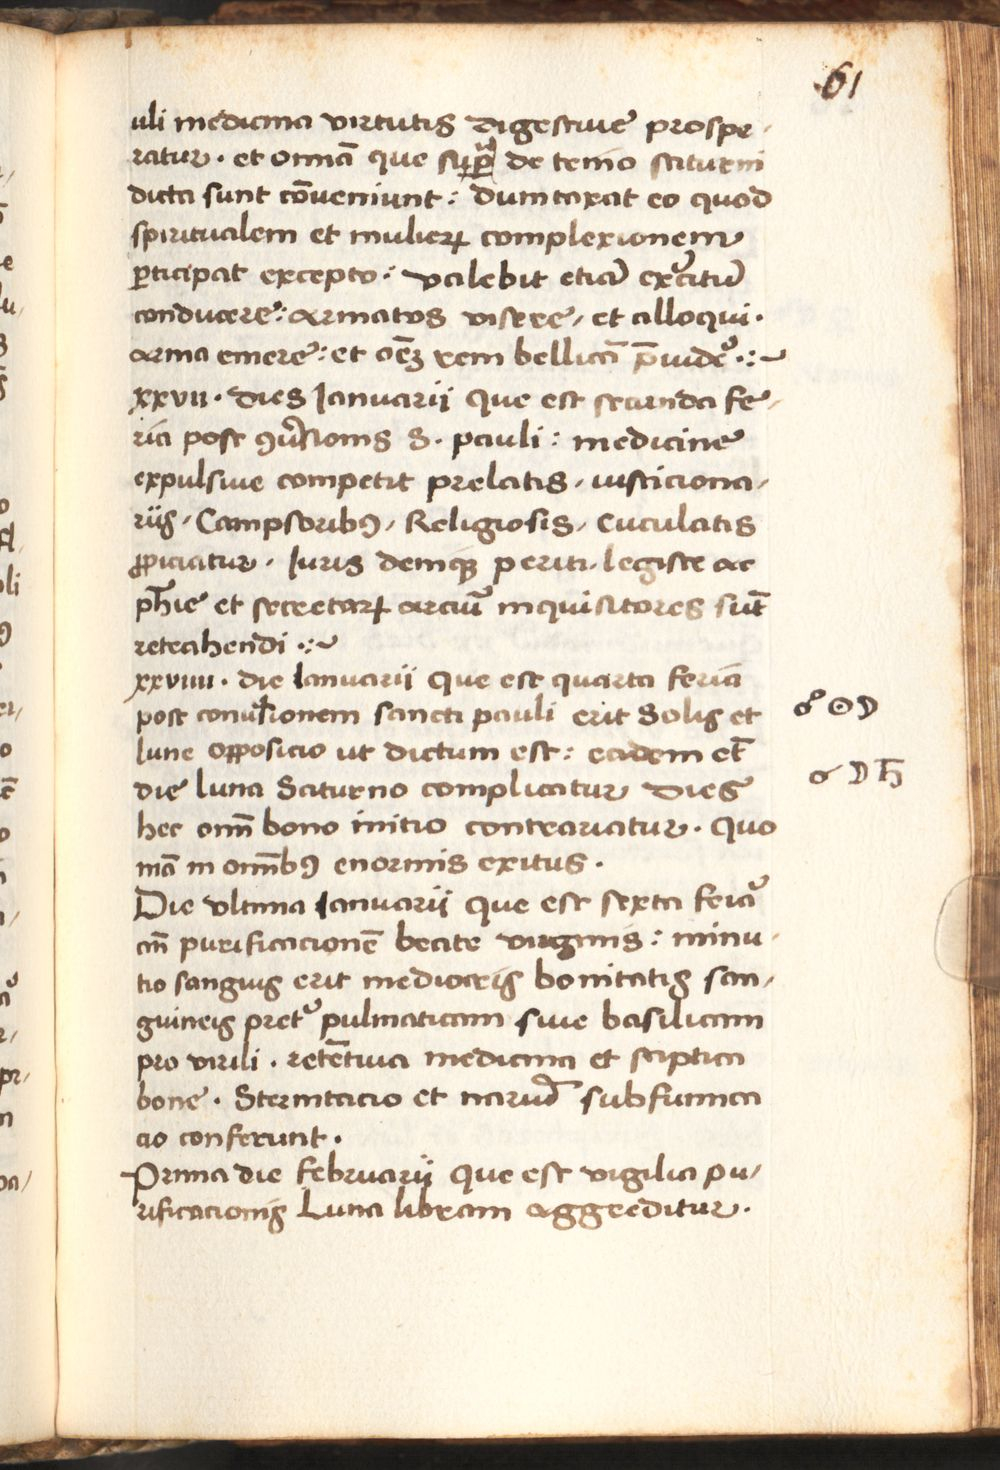 61
uli medicina virtutis digestiue prospe-
ratur. et omnia que sup̄ᵃ de tenio saturni
dicta sunt cōueniunt: dumtaxat eo quod
spiritualem et mulieꝝ complexionem
ꝑticipat excepto: valebit etiā exˀcitū
conducere: armatos visere, et alloqui.
arma emere: et oēꝫ rem bellicā p̄uideˀ.:~
xxvii. dies Ianuarii que est secunda fe-
ria post ꝯuˀsionis S. pauli: medicine
expulsiue competit prelatis, iusticiona-
riis, Campsoribꝰ, Religiosis, Cuculatis
ꝓpiciatur. Iuris demiqꝫ periti, legiste ac
ph̄ie et secretaꝝ arciū inquisitores sūt
retrahendi .:~
xxviiii. die Ianuarii que est quarta feria
post conuˀsionem sancti pauli erit Solis et
☍ ☉ ☽
lune opposicio ut dictum est: eadem et̄
☌ ☽ ♄
die luna Saturno complicatur dies
hec omī bono initio contrariatur. Quo
niā in omībꝰ enormis exitus.
Die vltima Ianuarii que est sexta feriaˀ
an̄ purificacionē beate virginis: minu-
tio sanguis erit mediocris bonitatis san-
guineis pretˀ pulmaticam siue basilicam
pro virili. retētiua medicina et stiptica
bone. Sternutacio et nariū subfumica
cio conferunt.
Prima die februarii que est vigilia pu-
rificacionis Luna libram aggreditur.